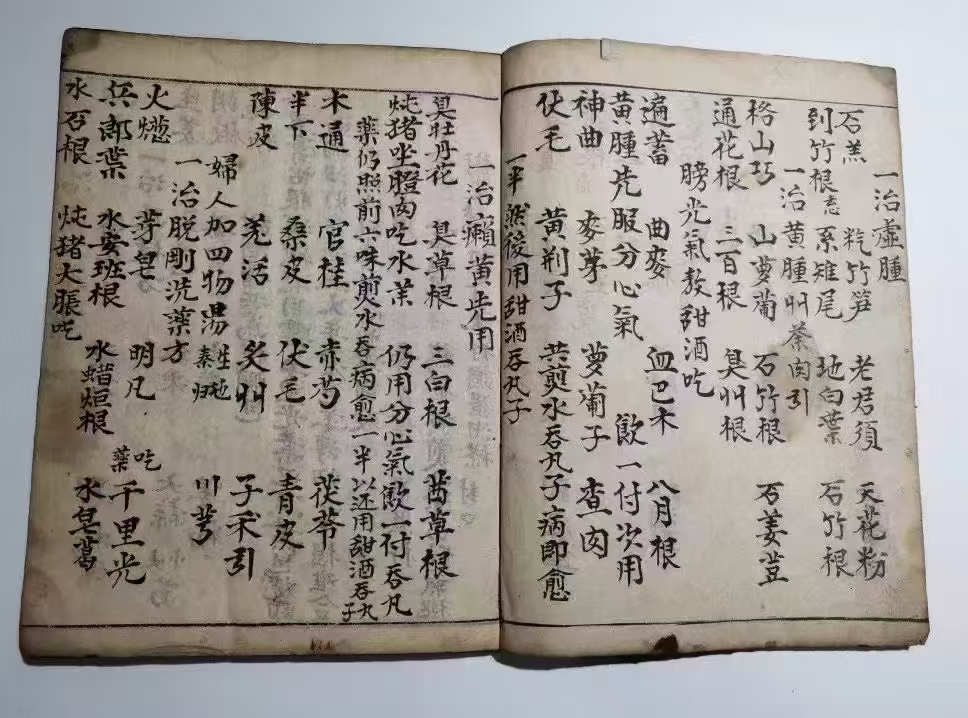 一治虛腫
石羔 籺竹笋 老君須 天花粉
到竹根 系雉尾 地白葉 石竹根
一治黄腫 州茶肉引
格山巧 山萝蔔 石竹根 石姜荳
通花根 三百根 臭州根
膀光氣敖甜酒吃
遍蓄 曲麥 血巴木 八月根
黄腫先服分心氣飲一付次用
神曲 麥芽 萝蔔子 查肉
伏毛 黄荆子 共煎水吞丸子病即愈
一半然後用甜酒吞丸子
一治癩黄先用
臭牡丹花 臭草根 三白根 茜草根
炖猪坐膛肉吃水茶 仍用分心氣飲一付吞丸
藥仍照前六味煎水吞病愈一半以还用甜酒吞丸子
木通 官桂 赤芍 茯苓
半下 桑皮 伏毛 青皮
陳皮 羌活 炙州 子禾引
婦人加四物湯 生地 秦归 川芎
一治脱剛洗藥方
火葱 芽皂 明凡 吃藥千里光
兵郎葉 水安班根 水蜡烜根 水皂葛
水石根 炖猪大腸吃